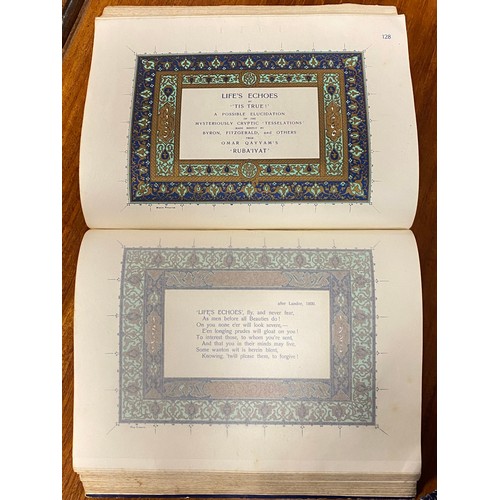 128
LIFE'S ECHOES
BY
"TIS TRUE!"
A POSSIBLE ELUCIDATION
OF THE
MYSTERIOUSLY CRYPTIC "TESSELATIONS"
MADE MOSTLY BY
BYRON, FITZGERALD, AND OTHERS
FROM
OMAR QAYYAM'S
"RUBA'IYAT"
after Landor, 1806.
'LIFE'S ECHOES', fly, and never fear,
As men before all Beauties do!
On you none e'er will look severe,—
E'en longing prudes will gloat on you!
To interest those, to whom you're sent,
And that you in their minds may live,
Some wanton wit is herein blent,
Knowing, 'twill please them, to forgive!